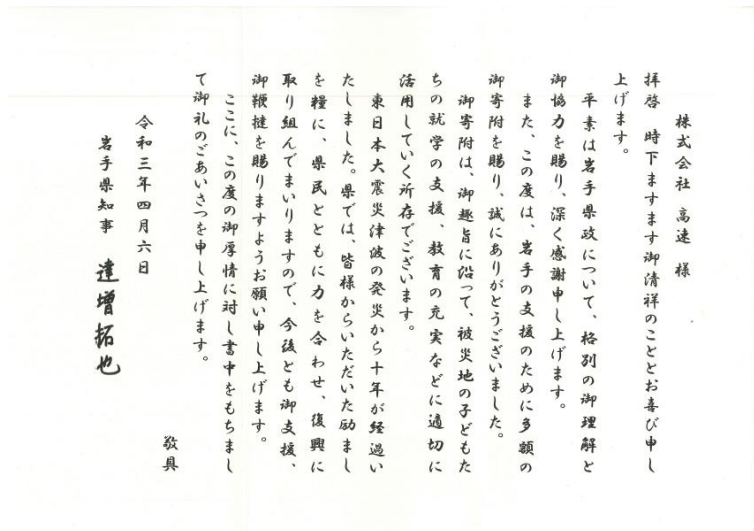 株式会社 高速 様
拝啓 時下ますます御清祥のこととお喜び申し
上げます。
平素は岩手県政について、格別の御理解と
御協力を賜り、深く感謝申し上げます。
また、この度は、岩手の支援のために多額の
御寄附を賜り、誠にありがとうございました。
御寄附は、御趣旨に沿って、被災地の子どもた
ちの就学の支援、教育の充実などに適切に
活用していく所存でございます。
東日本大震災津波の発災から十年が経過い
たしました。県では、皆様からいただいた励まし
を糧に、県民とともに力を合わせ、復興に
取り組んでまいりますので、今後とも御支援、
御鞭撻を賜りますようお願い申し上げます。
ここに、この度の御厚情に対し書中をもちまし
て御礼のごあいさつを申し上げます。
敬具
令和三年四月六日
岩手県知事 達増拓也